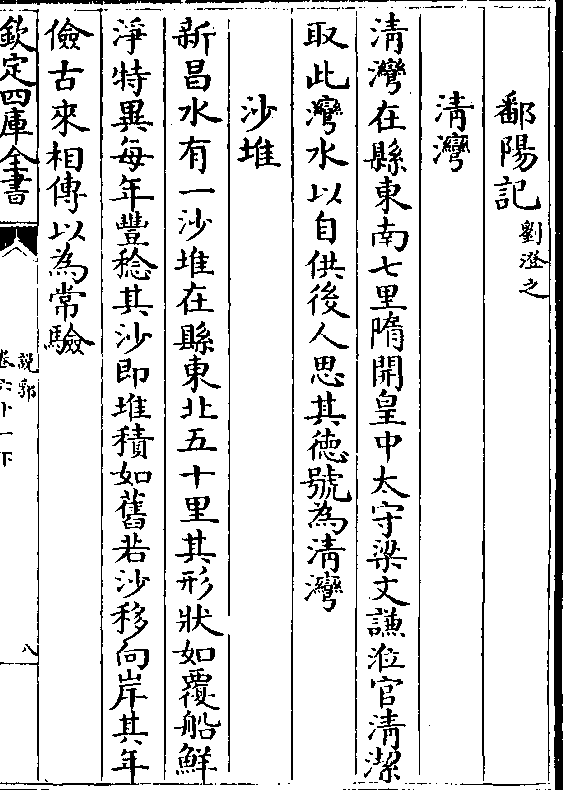 鄱陽記劉澄之
清灣
清灣在縣東南七里隋開皇中太守梁文謙涖官清潔
取此灣水以自供後人思其德號為清灣
沙堆
新昌水有一沙堆在縣東北五十里其形狀如覆船鮮
淨特異每年豐稔其沙即堆積如舊若沙移向岸其年
儉古來相傳以為常驗
欽定四庫全書
說郛
卷六十一下
八